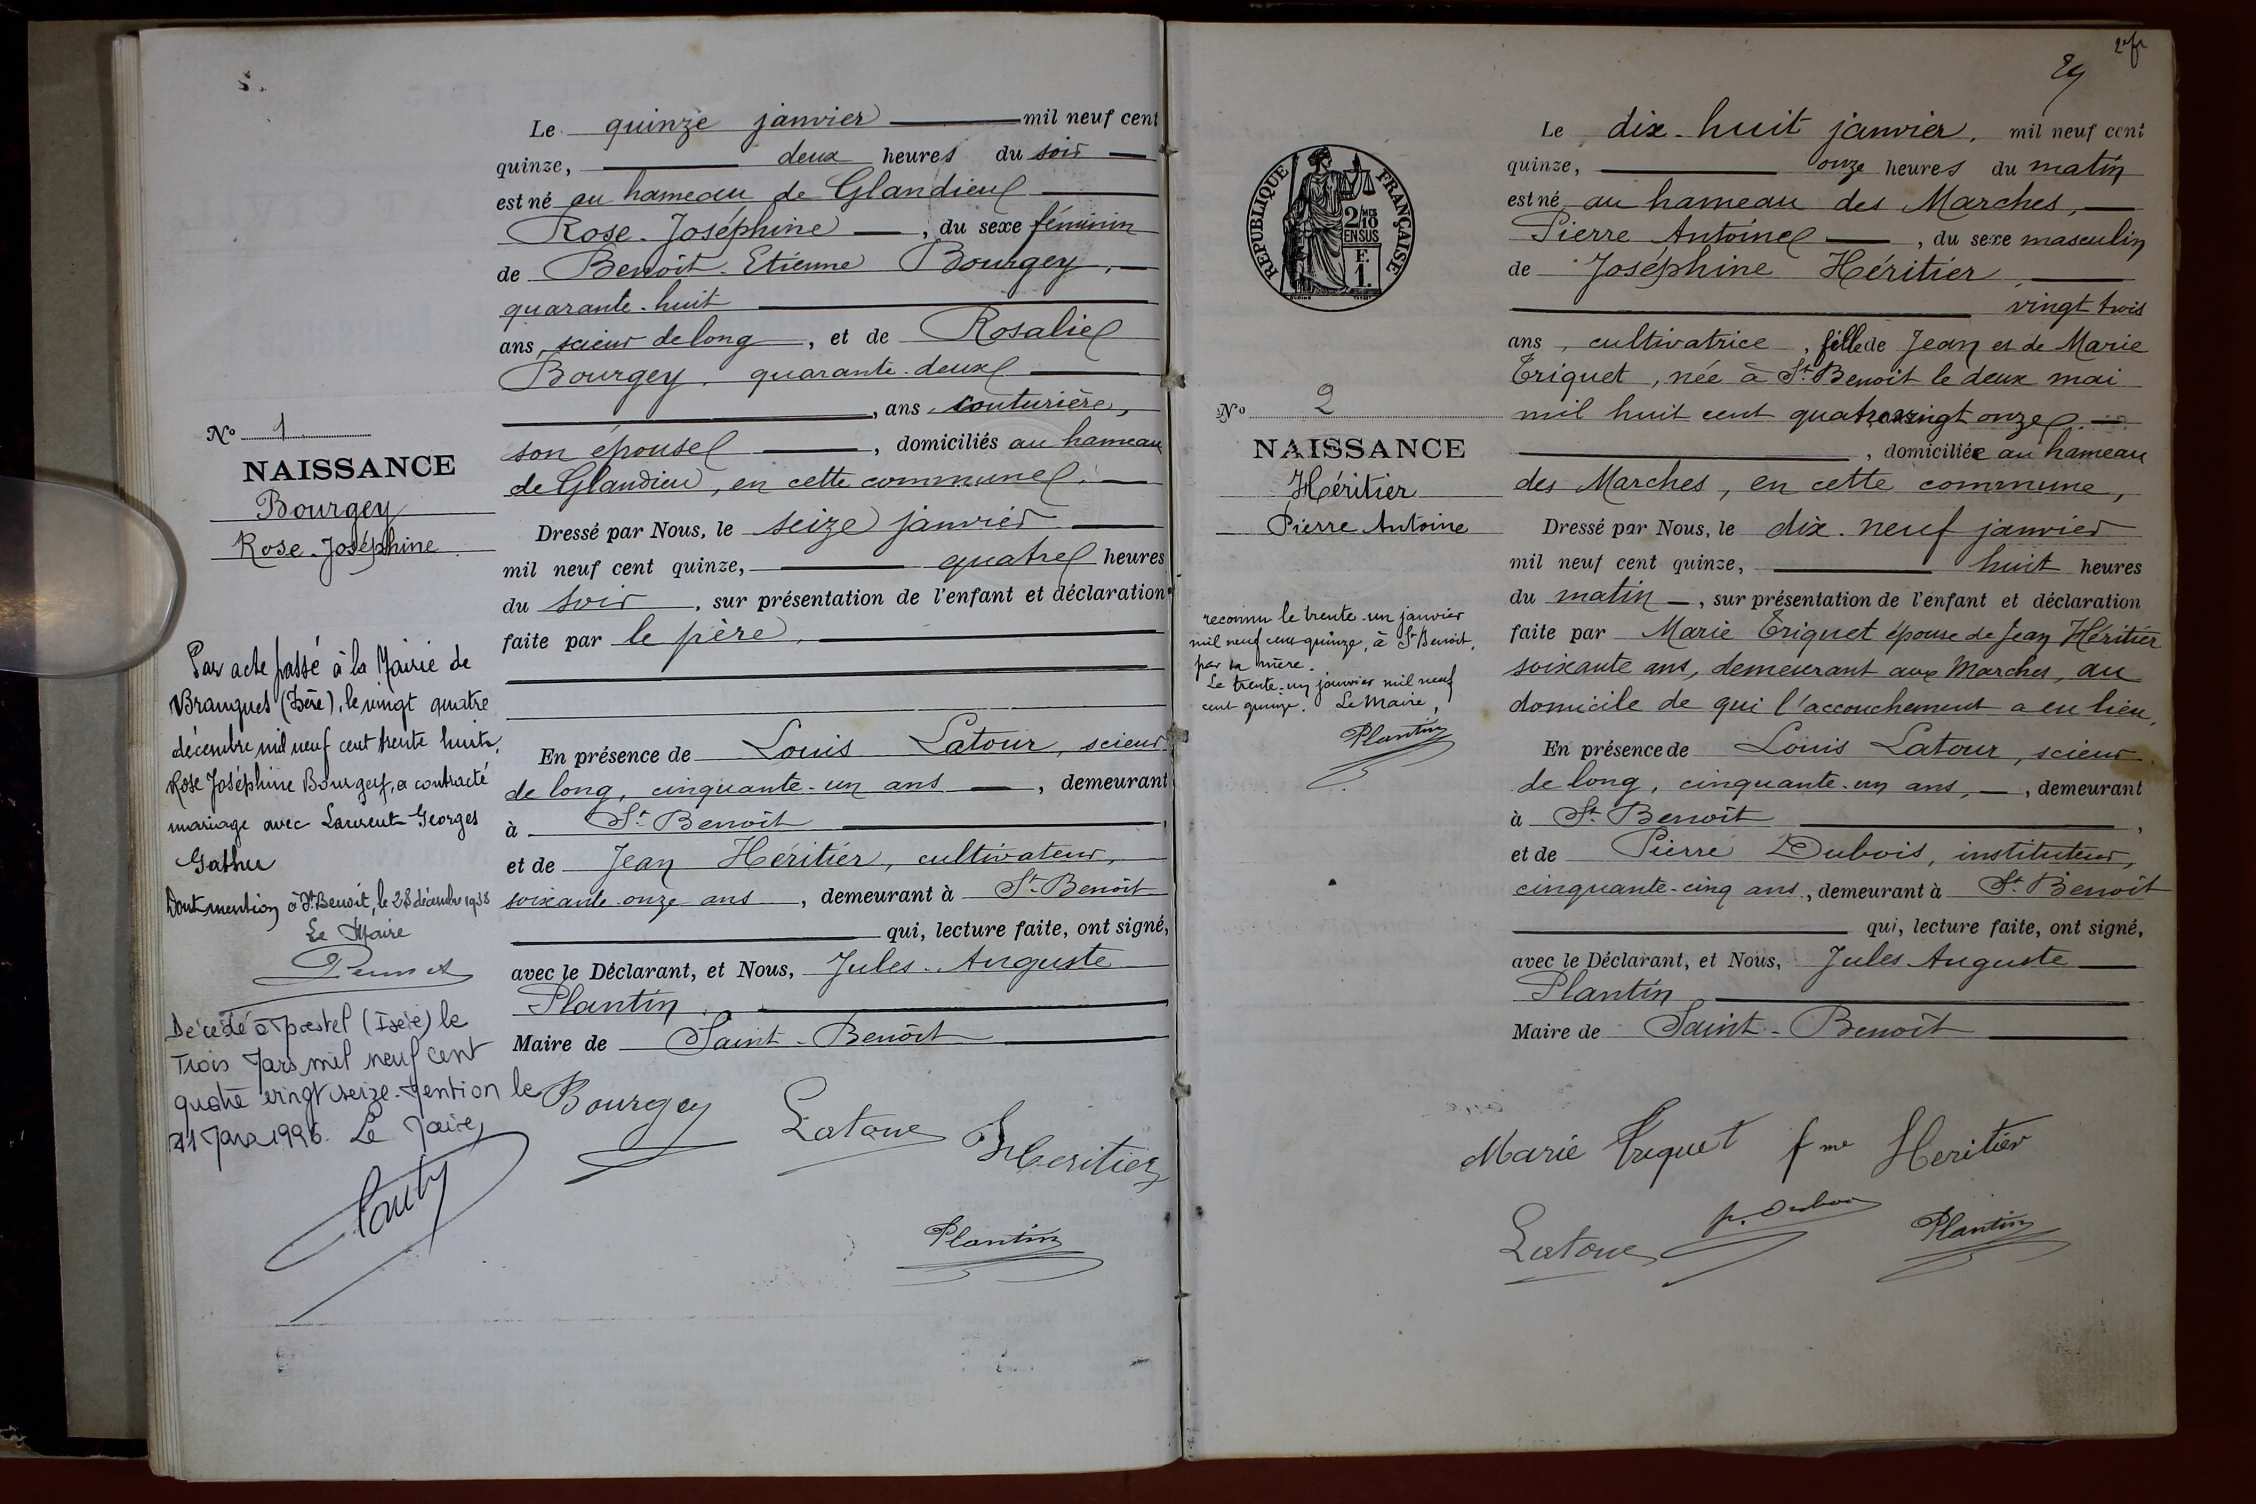 Le quinze janvier mil neuf cent
quinze, deux heures du soir
est né au hameau de Glandieu
Rose-Joséphine, du sexe féminin
de Benoît-Etienne Bourgey,
quarante-huit
ans, scieur de long, et de Rosalie
Bourgey, quarante-deux
, ans, couturière,
son épouse, domiciliés au hameau
de Glandieu, en cette commune.
Dressé par Nous, le seize janvier
mil neuf cent quinze, quatre heures
du soir, sur présentation de l'enfant et déclaration
faite par le père,
En présence de Louis Latour, scieur
de long, cinquante-un ans, demeurant
à St Benoît,
et de Jean Héritier, cultivateur,
soixante onze ans, demeurant à St-Benoît
qui, lecture faite, ont signé,
avec le Déclarant, et Nous, Jules-Auguste
Plantin,
Maire de Saint-Benoît
Bourgey Latour Heritier
Plantin
No 1
NAISSANCE
Bourgey
Rose-Joséphine
Par acte passé à la Mairie de
Brangues (Isère), le vingt quatre
décembre mil neuf cent trente huit,
Rose Joséphine Bourgey, a contracté
mariage avec Laurent Georges
Gathu
Dont mention à St Benoit, le 28 décembre 1938
Le Maire
Décédé à Morestel (Isère) le
Trois Mars mil neuf cent
quatre vingt seize. Mention le
21 Mars 1996. Le Maire
29
Le dix-huit janvier, mil neuf cent
quinze, onze heures du matin
est né au hameau des Marches,
Pierre Antoine, du sexe masculin
de Joséphine Héritier,
vingt trois
ans, cultivatrice, fille de Jean et de Marie
Triquet, née à St-Benoit le deux mai
mil huit cent quatre vingt onze,
, domiciliée au hameau
des Marches, en cette commune,
Dressé par Nous, le dix-neuf janvier
mil neuf cent quinze, huit heures
du matin, sur présentation de l'enfant et déclaration
faite par Marie Triquet épouse de Jean Héritier
soixante ans, demeurant aux Marches, au
domicile de qui l'accouchement a eu lieu,
En présence de Louis Latour, scieur
de long, cinquante-un ans, demeurant
à St-Benoît,
et de Pierre Dubois, instituteur,
cinquante-cinq ans, demeurant à St-Benoît
qui, lecture faite, ont signé,
avec le Déclarant, et Nous, Jules Auguste
Plantin
Maire de Saint-Benoît
Marie Triquet fme Heritier
Latour p. Dubois Plantin
REPUBLIQUE FRANÇAISE
2/10 MES
EN SUS
F.
1.
No 2
NAISSANCE
Héritier
Pierre Antoine
reconnu le trente-un janvier
mil neuf cent quinze, à St Benoît,
par sa mère.
Le trente-un janvier mil neuf
cent quinze. Le Maire,
Plantin